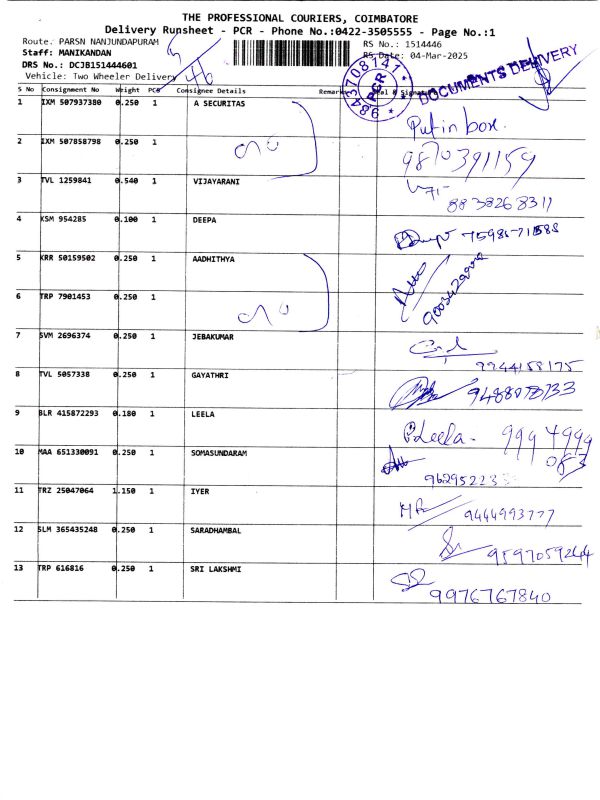 THE PROFESSIONAL COURIERS, COIMBATORE
Delivery Runsheet - PCR - Phone No.:0422-3505555 - Page No.:1
Route: PARSN NANJUNDAPURAM
RS No.: 1514446
Staff: MANIKANDAN
RS Date: 04-Mar-2025
DRS No.: DCJB151444601
Vehicle: Two Wheeler Delivery
9843708141
PCR
DOCUMENTS DELIVERY
S No Consignment No Weight PCS Consignee Details Remarks Seal & Signature
1 IXM 507937380 0.250 1 A SECURITAS
Put in box.
2 IXM 507858798 0.250 1
9870391159
3 TVL 1259841 0.540 1 VIJAYARANI
8838268311
4 KSM 954285 0.100 1 DEEPA
5 KRR 50159502 0.250 1 AADHITHYA
6 TRP 7901453 0.250 1
7 SVM 2696374 0.250 1 JEBAKUMAR
9244158175
8 TVL 5057338 0.250 1 GAYATHRI
9 BLR 415872293 0.180 1 LEELA
Leela - 9994999
083
10 MAA 651330091 0.250 1 SOMASUNDARAM
96295223
11 TRZ 25047064 1.150 1 IYER
9444993777
12 SLM 365435248 0.250 1 SARADHAMBAL
9597059244
13 TRP 616816 0.250 1 SRI LAKSHMI
9976767840